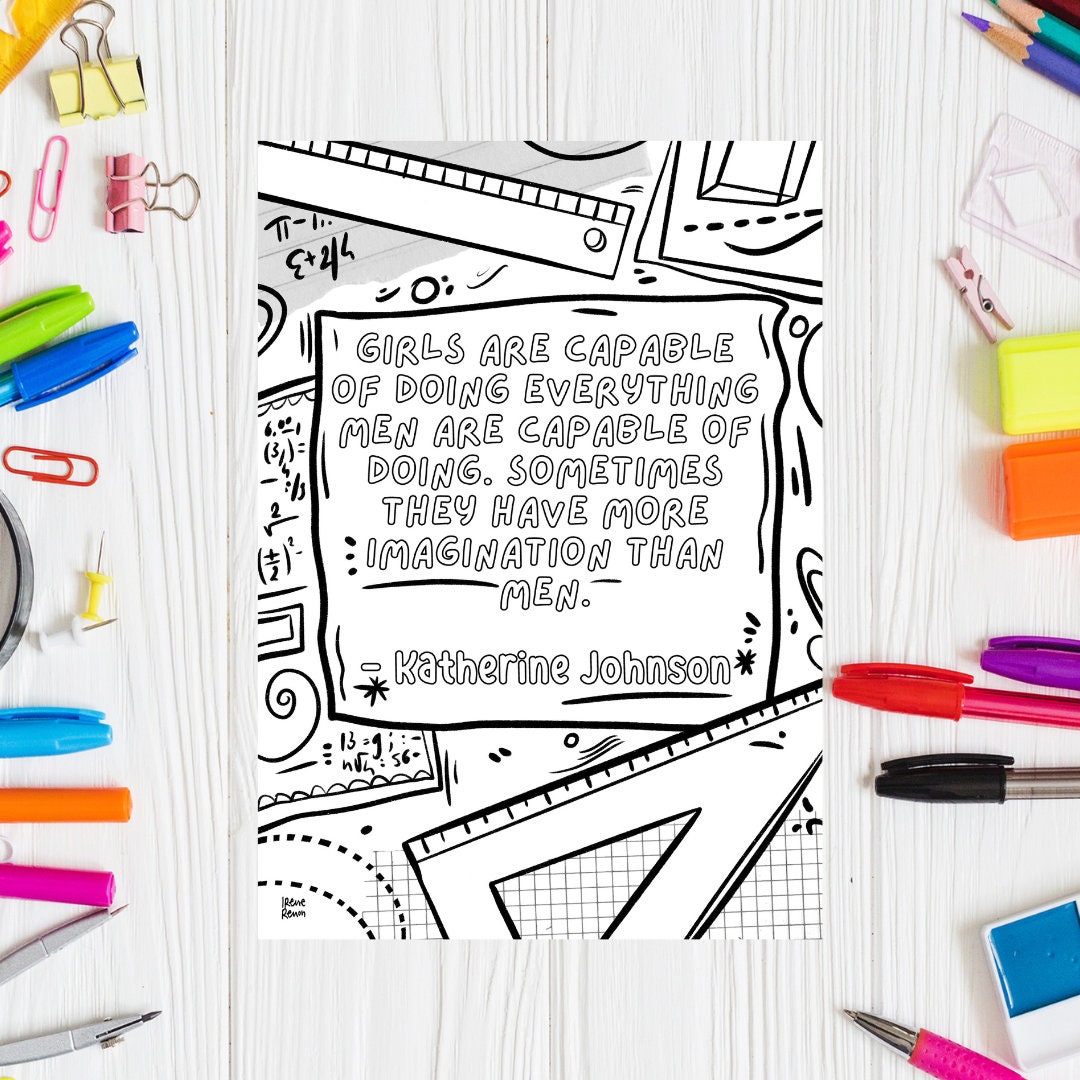 π-1..
ξ+2/4
GIRLS ARE CAPABLE
OF DOING EVERYTHING
MEN ARE CAPABLE OF
DOING. SOMETIMES
THEY HAVE MORE
IMAGINATION THAN
MEN.
- Katherine Johnson
IRENE
Renon